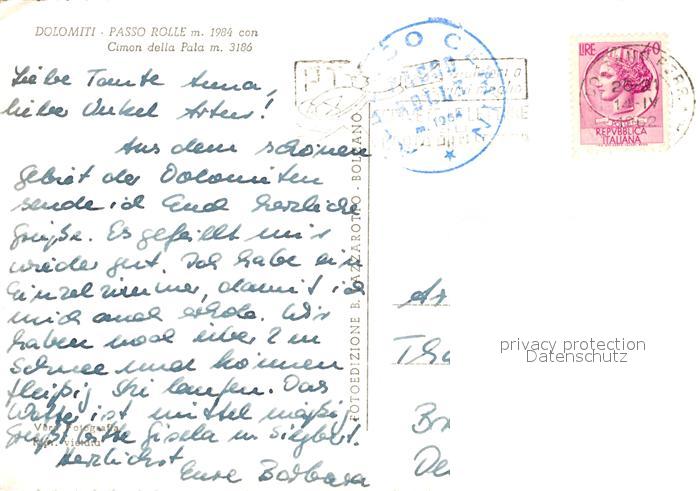 DOLOMITI - PASSO ROLLE m. 1984 con
Cimon della Pala m. 3186
Liebe Tante Anna,
lieber Onkel Artur!
Aus dem schönen
Gebiet der Dolomiten
sende ich Euch herzliche
Grüße. Es gefällt mir
wieder gut. Ich habe ein
Einzelzimmer, damit ich
mich auch erhole. Wir
haben noch über 2 m
Schnee und können
fleißig Ski laufen. Das
Wetter ist mittelmäßig
Grüßt bitte Gisela u. Sigbert.
Herzlichst
Eure Barbara
Vera Fotografia
Rip. vietata
FOTOEDIZIONE B. LAZZAROTTO - BOLZANO
PASSO
ROLLE
m. 1984
LIRE 40
REPVBBLICA
ITALIANA
14-IV
privacy protection
Datenschutz